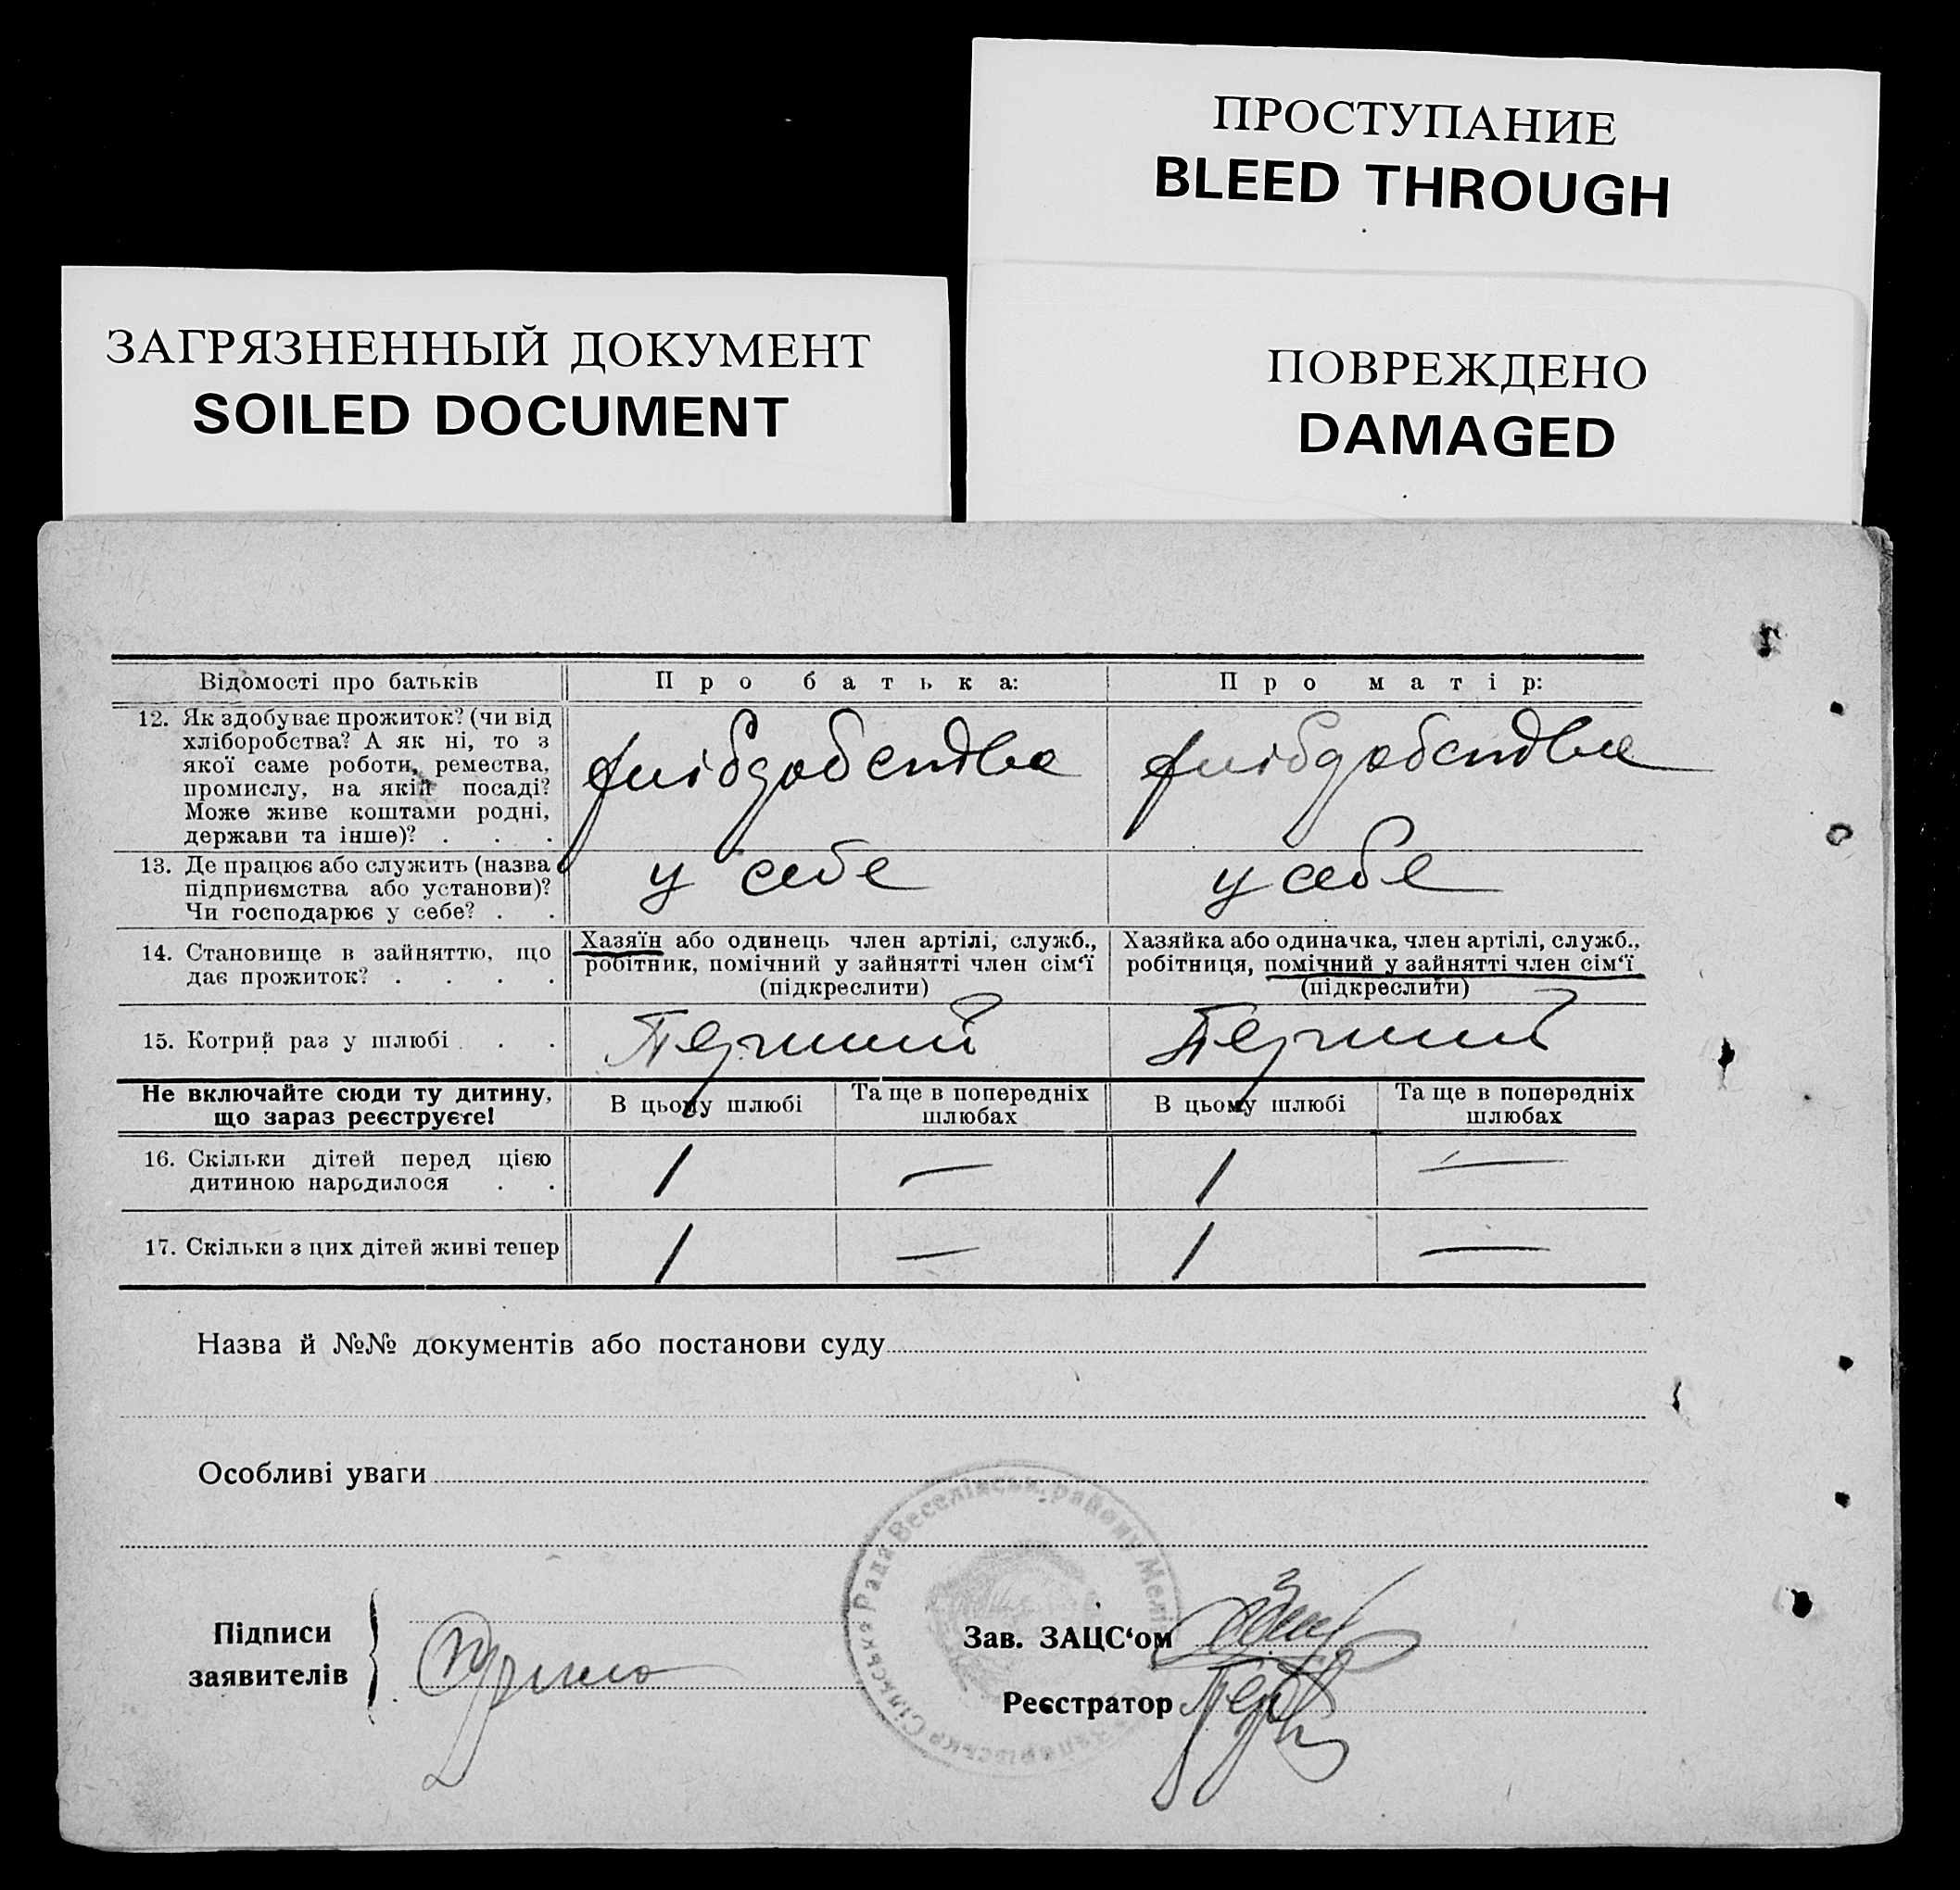 ПРОСТУПАНИЕ
BLEED THROUGH
ЗАГРЯЗНЕННЫЙ ДОКУМЕНТ
SOILED DOCUMENT
ПОВРЕЖДЕНО
DAMAGED
Відомості про батьків Про батька: Про матір:
12. Як здобуває прожиток? (чи від
хліборобства? А як ні, то з
якої саме роботи, ремества,
промислу, на якій посаді?
Може живе коштами родні,
держави та інше)? . . .
13. Де працює або служить (назва
підприємства або установи)?
Чи господарює у себе? . .
у себе у себе
14. Становище в зайняттю, що
дає прожиток? . . . .
Хазяїн або одинець член артілі, служб.,
робітник, помічний у зайнятті член сім‘ї
(підкреслити)
Хазяйка або одиначка, член артілі, служб.,
робітниця, помічний у зайнятті член сім‘ї
(підкреслити)
15. Котрий раз у шлюбі . . .
Перший Перший
Не включайте сюди ту дитину,
що зараз реєструєте!
В цьому шлюбі
Та ще в попередніх
шлюбах
В цьому шлюбі
Та ще в попередніх
шлюбах
16. Скільки дітей перед цією
дитиною народилося . .
1 — 1 —
17. Скільки з цих дітей живі тепер
1 — 1 —
Назва й №№ документів або постанови суду
Особливі уваги
Сільська Рада Веселівськ. району Мелі
Підписи
заявителів
Зав. ЗАЦС‘ом
Реєстратор